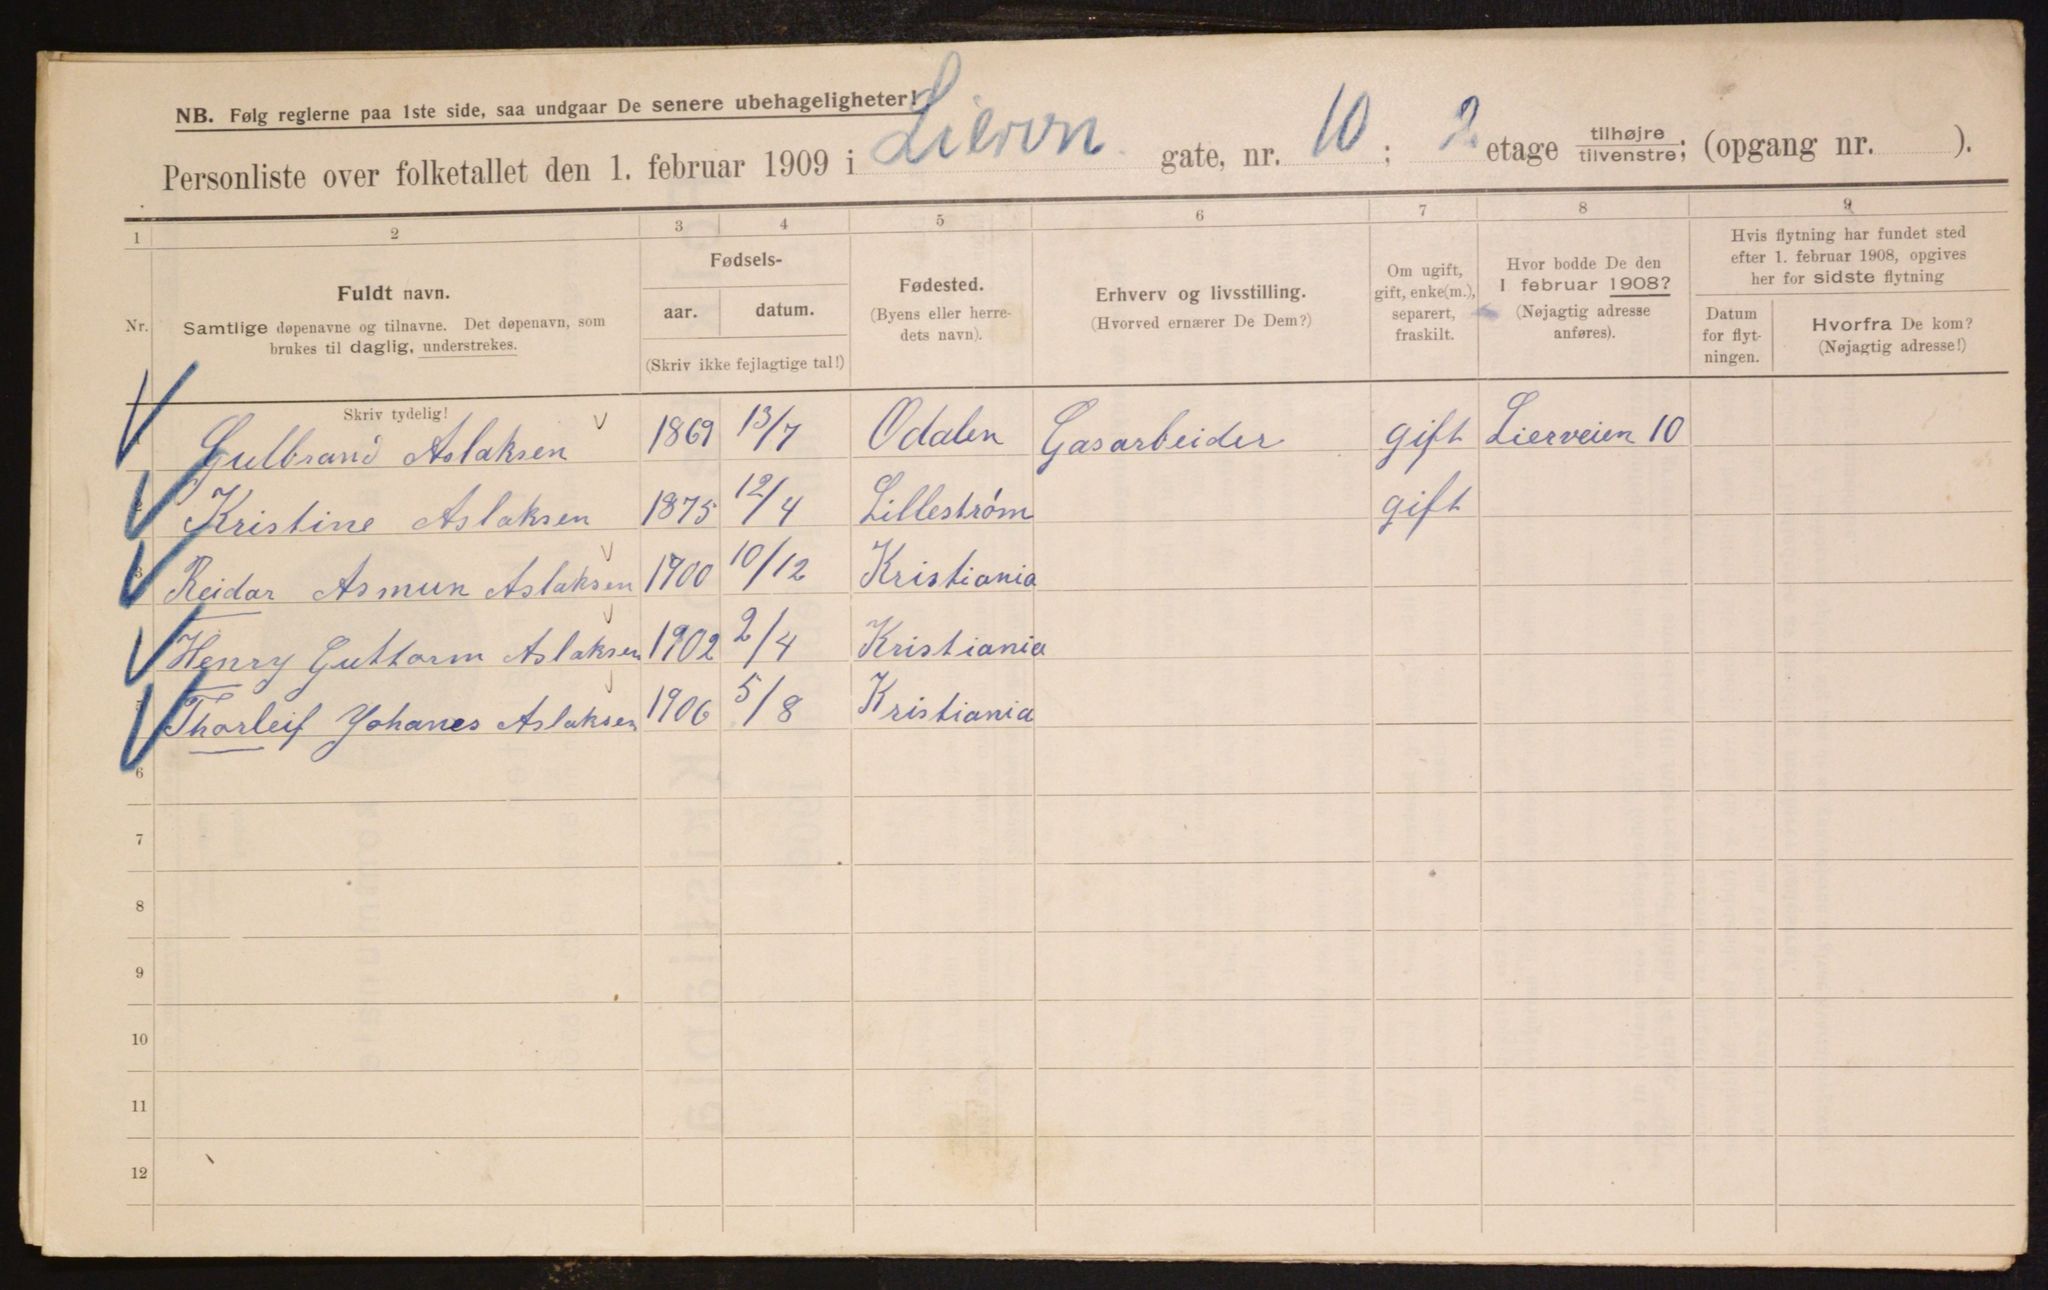 NB. Følg reglerne paa 1ste side, saa undgaar De senere ubehageligheter!
Personliste over folketallet den 1. februar 1909 i Liervn gate, nr. 10; 2 etage tilhøjre/tilvenstre; (opgang nr. ).
1 2 3 4 5 6 7 8 9
Nr.
Fuldt navn.
Samtlige døpenavne og tilnavne. Det døpenavn, som
brukes til daglig, understrekes.
Skriv tydelig!
Fødsels-
aar. datum.
(Skriv ikke fejlagtige tal!)
Fødested.
(Byens eller herre-
dets navn).
Erhverv og livsstilling.
(Hvorved ernærer De Dem?)
Om ugift,
gift, enke(m.),
separert,
fraskilt.
Hvor bodde De den
1 februar 1908?
(Nøjagtig adresse
anføres).
Hvis flytning har fundet sted
efter 1. februar 1908, opgives
her for sidste flytning
Datum
for flyt-
ningen.
Hvorfra De kom?
(Nøjagtig adresse!)
Gulbrand Aslaksen 1869 13/7 Odalen Gasarbeider gift Lierveien 10
Kristine Aslaksen 1875 12/4 Lillestrøm gift
3 Reidar Asmun Aslaksen 1900 10/12 Kristiania
Henry Guttorm Aslaksen 1902 2/4 Kristiania
5 Thorleif Johanes Aslaksen 1906 5/8 Kristiania
6
7
8
9
10
11
12